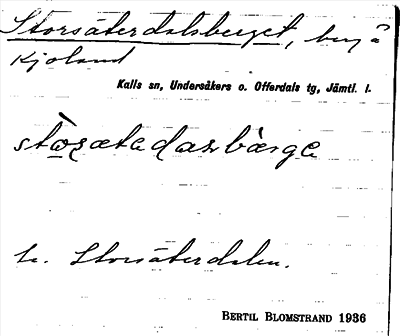 Storsäterdalsberget, berg å
Kjoland
Kalls sn, Undersåkers o. Offerdals tg, Jämtl. l.
stòsætadasbærge
t. Storsäterdalen.
BERTIL BLOMSTRAND 1936